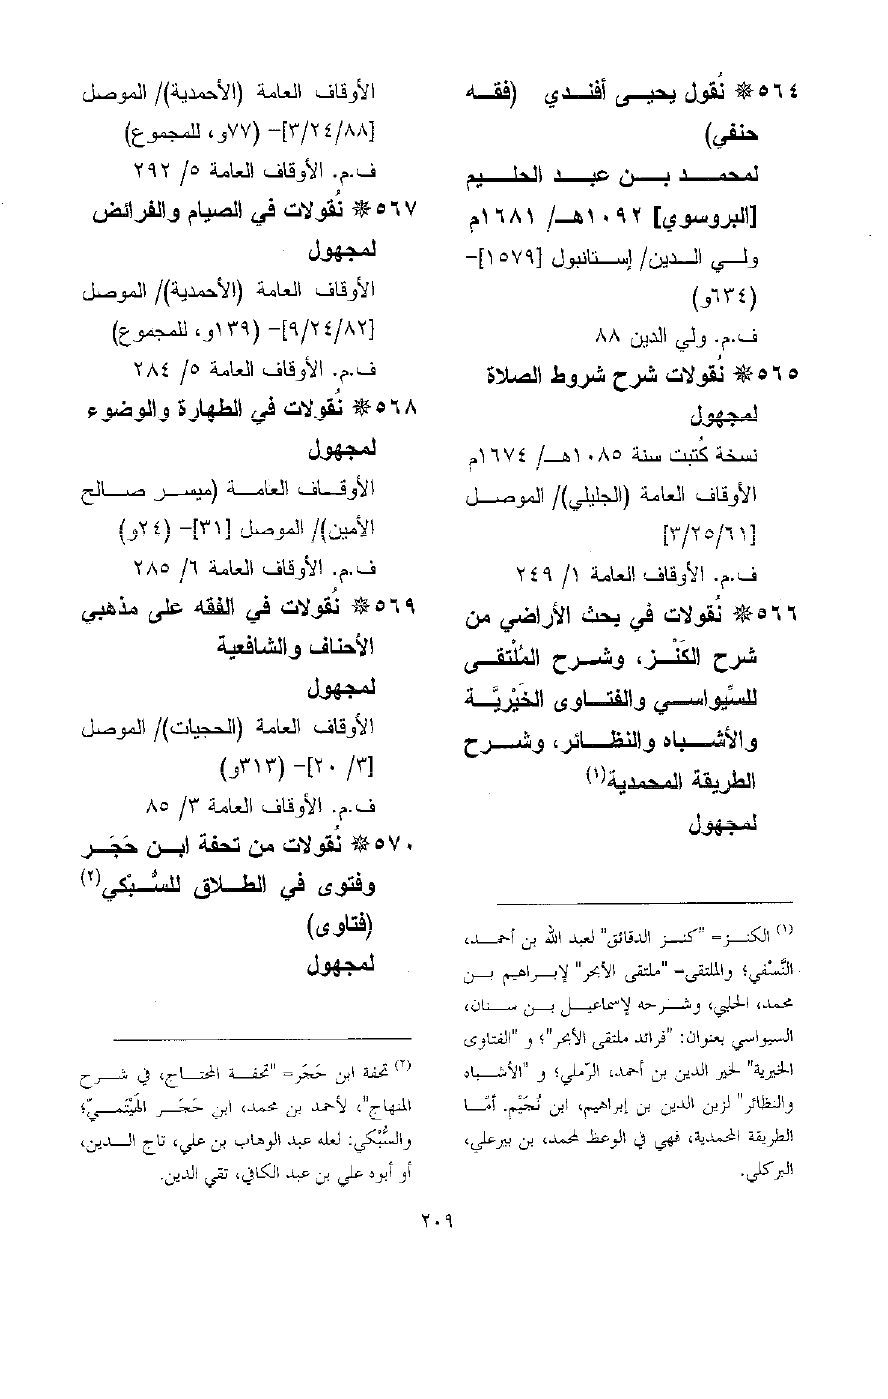 ٥٦٤* نُقول يحيى أفندي (فقه
حنفي)
لمحمد بن عبد الحليم
[البروسوي] ١٠٩٢هـ/ ١٦٨١م
ولي الدين/ إستانبول [١٥٧٩]-
(٦٣٤و)
ف.م. ولي الدين ٨٨
٥٦٥* نُقولات شرح شروط الصلاة
لمجهول
نسخة كُتبت سنة ١٠٨٥هـ/ ١٦٧٤م
الأوقاف العامة (الجليلي)/ الموصل
[٣/٢٥/٦١]
ف.م. الأوقاف العامة ١/ ٢٤٩
٥٦٦* نُقولات في بحث الأراضي من
شرح الكَنْز، وشرح المُلْتقى
للسِّيواسي والفتاوى الخَيْريَّة
والأشباه والنظائر، وشرح
الطريقة المحمدية(١)
لمجهول
(١) الكنز= "كنز الدقائق" لعبد الله بن أحمد،
النَّسْفي؛ والملتقى- "ملتقى الأبحر" لإبراهيم بن
محمد، الحلبي، وشرحه لإسماعيل بن سنان،
السيواسي بعنوان: "فرائد ملتقى الأبحر"؛ و "الفتاوى
الخيرية" لخير الدين بن أحمد، الرّملي؛ و "الأشباه
والنظائر" لزين الدين بن إبراهيم، ابن نُجَيْم. أمّا
الطريقة المحمدية، فهي في الوعظ لمحمد، بن بيرعلي،
البركلي.
الأوقاف العامة (الأحمدية)/ الموصل
[٣/٢٤/٨٨]- (٧٧و، للمجموع)
ف.م. الأوقاف العامة ٥/ ٢٩٢
٥٦٧* نُقولات في الصيام والفرائض
لمجهول
الأوقاف العامة (الأحمدية)/ الموصل
[٩/٢٤/٨٢]- (١٣٩و، للمجموع)
ف.م. الأوقاف العامة ٥/ ٢٨٤
٥٦٨* نُقولات في الطهارة والوضوء
لمجهول
الأوقاف العامة (ميسر صالح
الأمين)/ الموصل [٣١]- (٢٤و)
ف.م. الأوقاف العامة ٦/ ٢٨٥
٥٦٩* نُقولات في الفقه على مذهبي
الأحناف والشافعية
لمجهول
الأوقاف العامة (الحجيات)/ الموصل
[٣/ ٢٠]- (٣١٣و)
ف.م. الأوقاف العامة ٣/ ٨٥
٥٧٠* نُقولات من تحفة ابن حَجَر
وفتوى في الطلاق للسُّبْكي(٢)
(فتاوى)
لمجهول
(٢) تحفة ابن حَجَر= "تحفة المحتاج، في شرح
المنهاج"، لأحمد بن محمد، ابن حَجَر الهَيْتَميّ؛
والسُّبْكي: لعله عبد الوهاب بن علي، تاج الدين،
أو أبوه علي بن عبد الكافي، تقي الدين.
٢٠٩